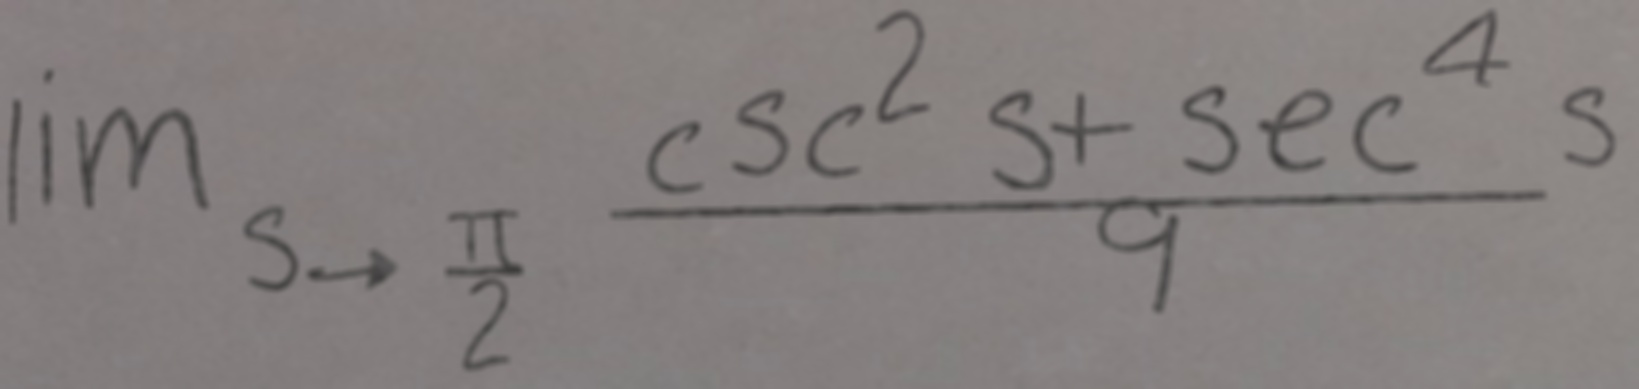 lim s→π/2 (csc² s + sec⁴ s)/9